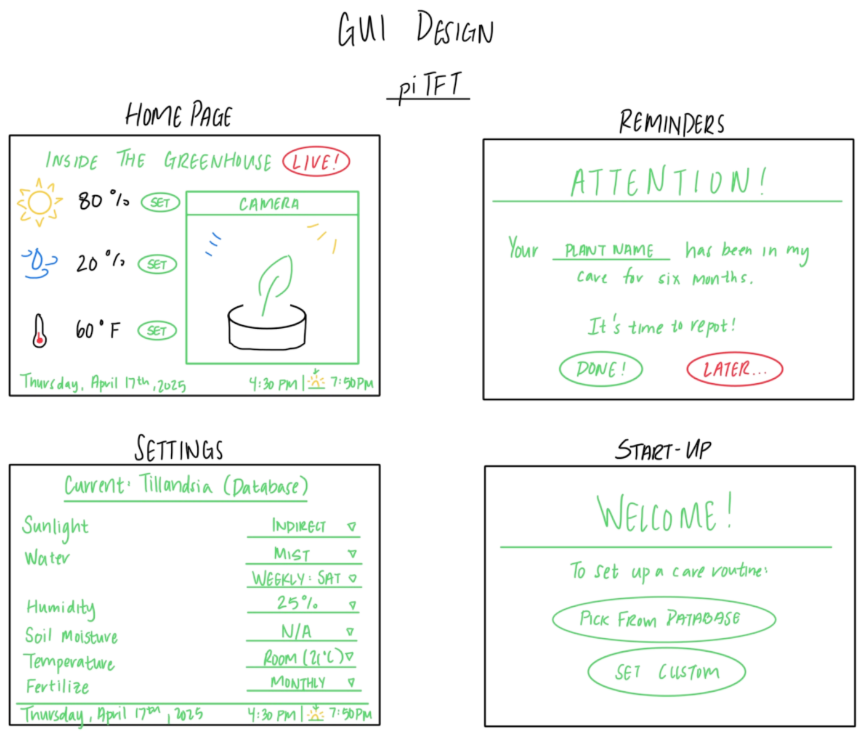 GUI DESIGN
piTFT
HOME PAGE
INSIDE THE GREENHOUSE LIVE!
80% SET
CAMERA
20% SET
60°F SET
Thursday, April 17th, 2025 4:30 PM | 7:50PM
REMINDERS
ATTENTION!
Your PLANT NAME has been in my
care for six months.
It's time to repot!
DONE! LATER...
SETTINGS
Current: Tillandsia (Database)
Sunlight INDIRECT
Water MIST
WEEKLY: SAT
Humidity 25%
Soil Moisture N/A
Temperature ROOM (21°C)
Fertilize MONTHLY
Thursday, April 17th, 2025 4:30 PM | 7:50PM
START-UP
WELCOME!
To set up a care routine:
PICK FROM DATABASE
SET CUSTOM